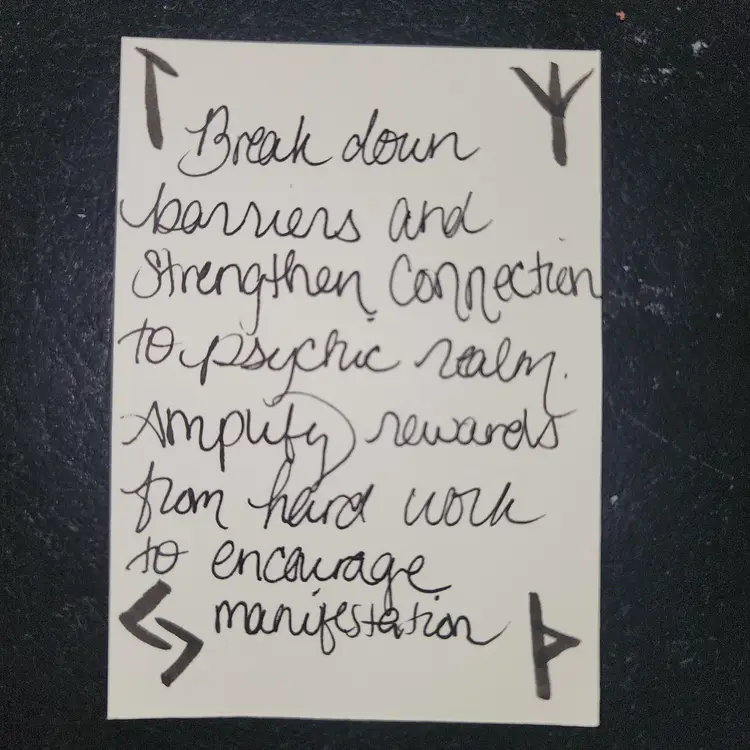 ᛚ ᛉ
Break down
barriers and
strengthen connection
to psychic realm.
Amplify rewards
from hard work
to encourage
manifestation
ᛃ ᚦ